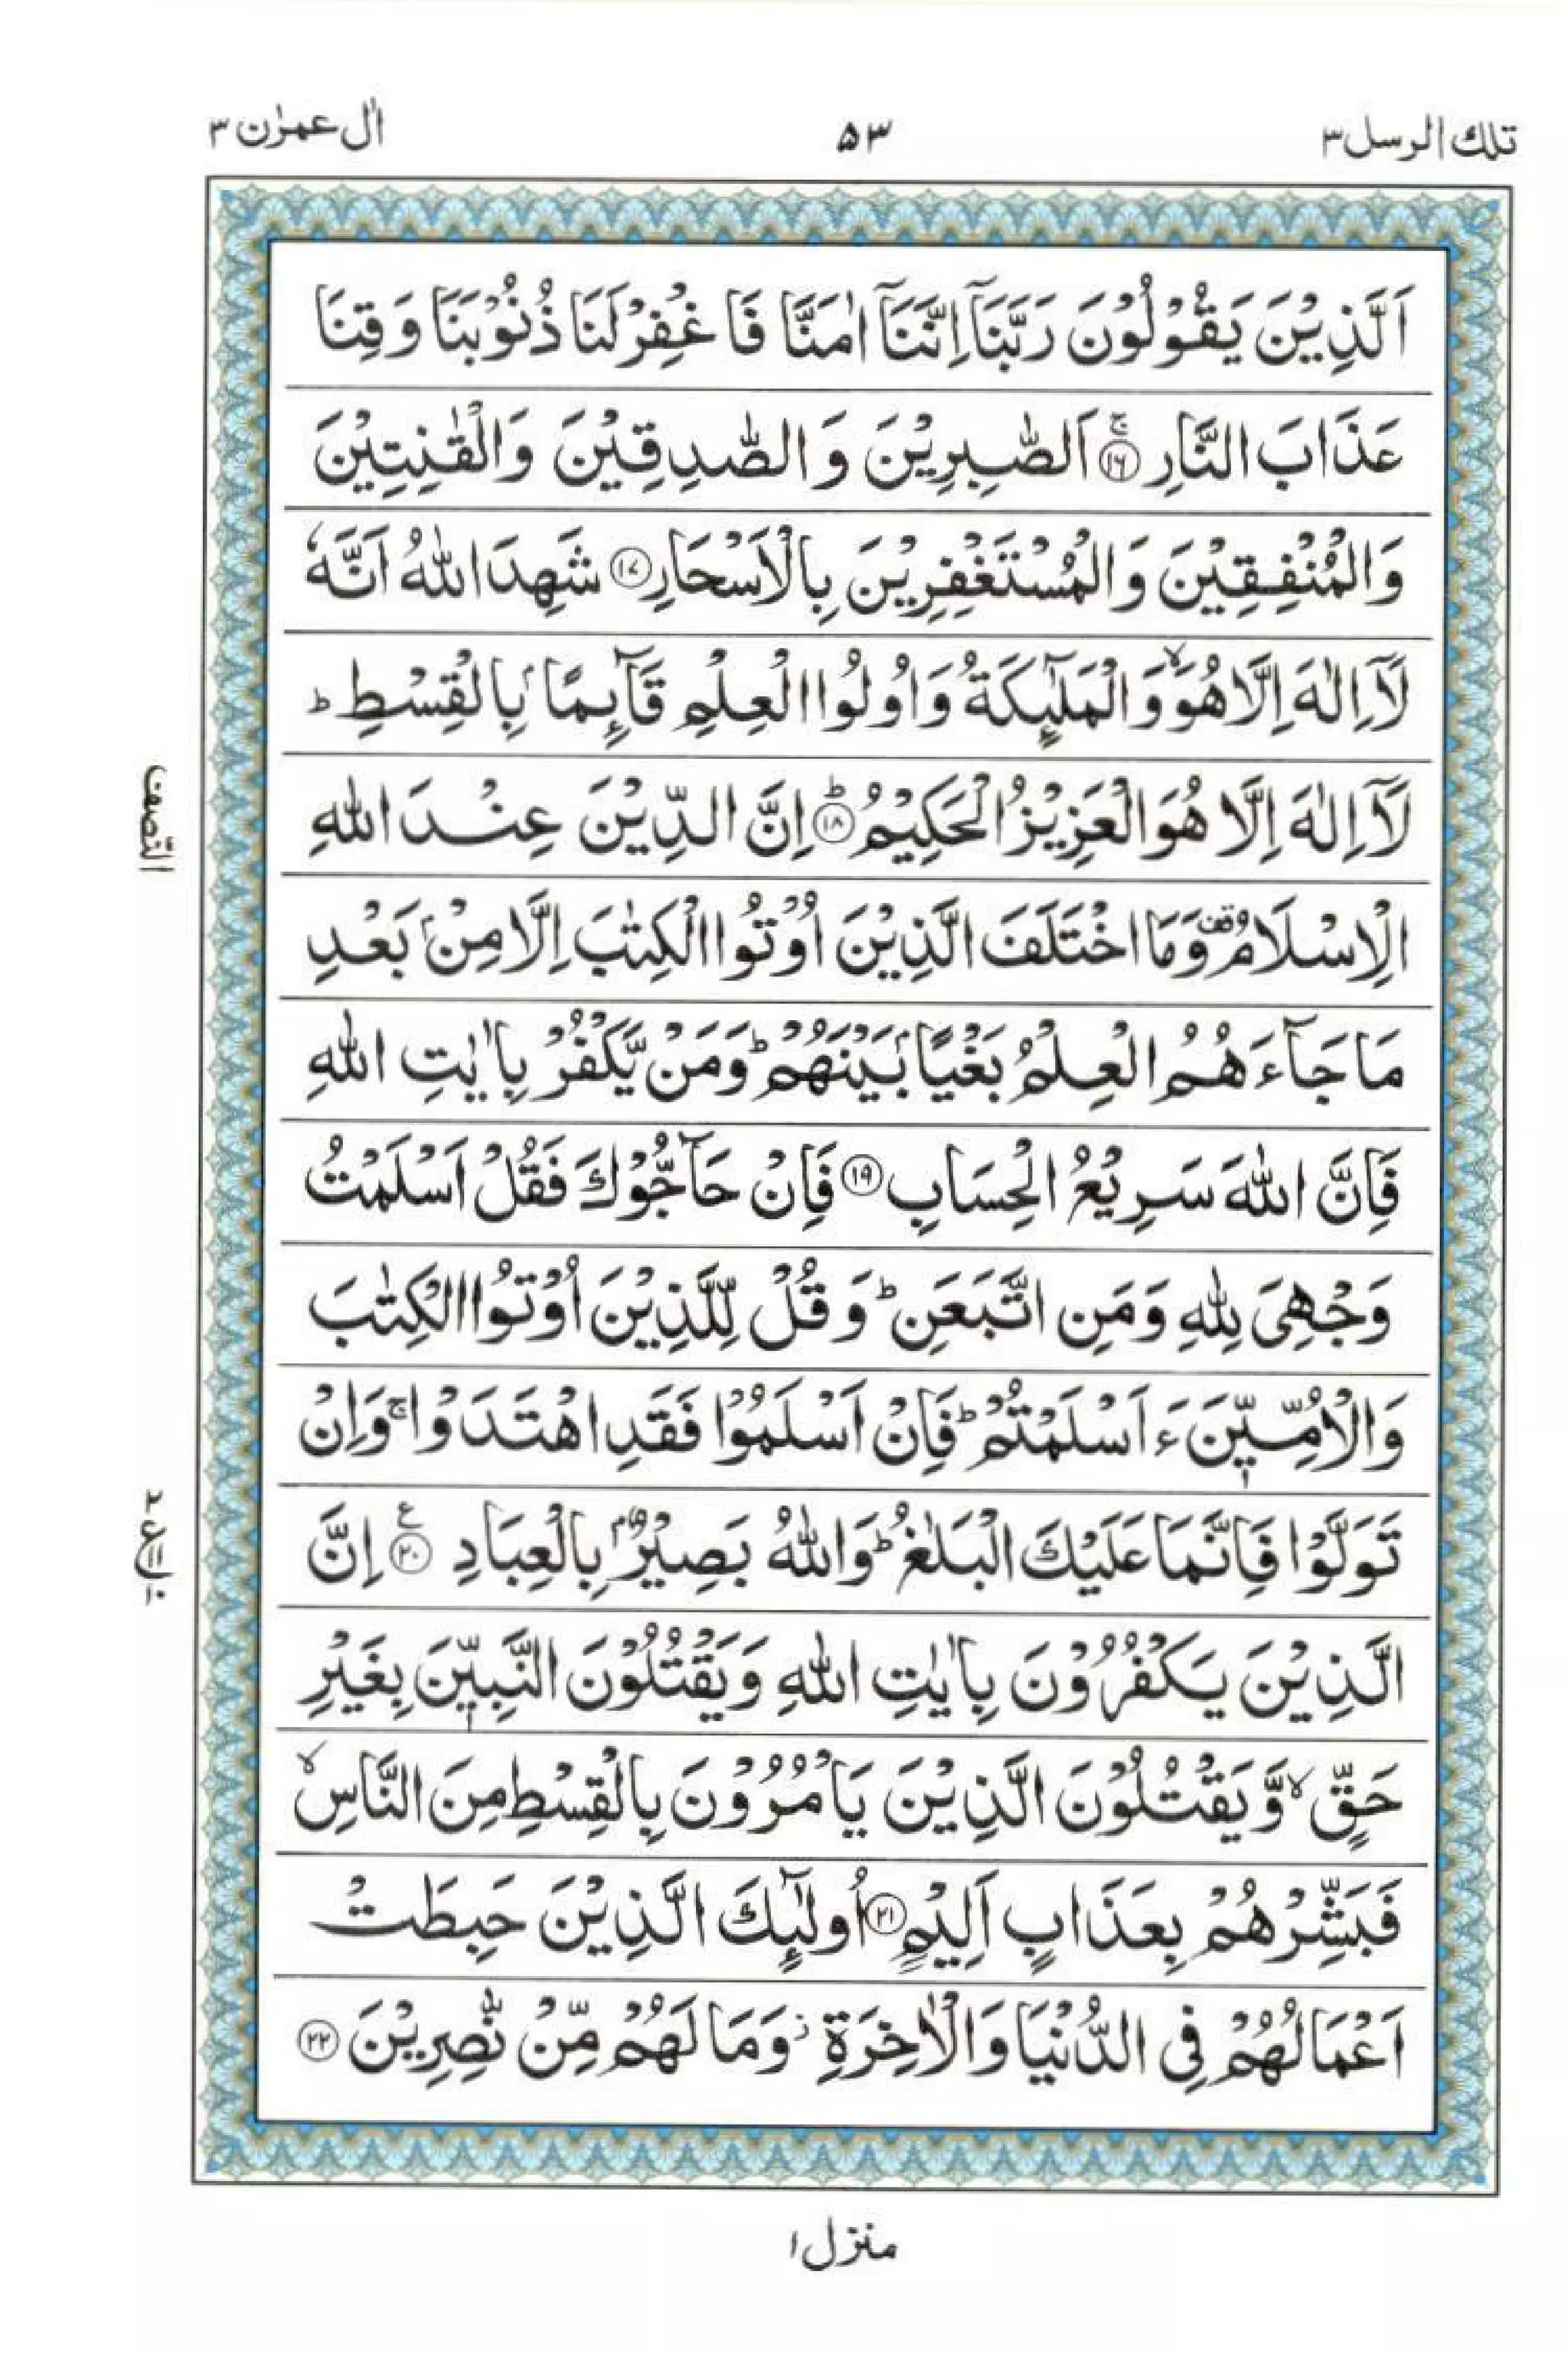 تلك الرسل ٣
۵۳
اٰل عمرٰن ٣
اَلَّذِيْنَ يَقُوْلُوْنَ رَبَّنَاۤ اِنَّنَاۤ اٰمَنَّا فَاغْفِرْلَنَا ذُنُوْبَنَا وَقِنَا
عَذَابَ النَّارِ ۚ﴿۱۶﴾ اَلصّٰبِرِيْنَ وَالصّٰدِقِيْنَ وَالْقٰنِتِيْنَ
وَالْمُنْفِقِيْنَ وَالْمُسْتَغْفِرِيْنَ بِالْاَسْحَارِ ﴿۱۷﴾ شَهِدَ اللّٰهُ اَنَّهٗ
لَاۤ اِلٰهَ اِلَّا هُوَ ۙ وَالْمَلٰٓئِكَةُ وَاُولُوا الْعِلْمِ قَآئِمًاۢ بِالْقِسْطِ ؕ
لَاۤ اِلٰهَ اِلَّا هُوَ الْعَزِيْزُ الْحَكِيْمُ ؕ﴿۱۸﴾ اِنَّ الدِّيْنَ عِنْدَ اللّٰهِ
الْاِسْلَامُ قف وَمَا اخْتَلَفَ الَّذِيْنَ اُوْتُوا الْكِتٰبَ اِلَّا مِنْۢ بَعْدِ
مَا جَآءَهُمُ الْعِلْمُ بَغْيًاۢ بَيْنَهُمْ ؕ وَمَنْ يَّكْفُرْ بِاٰيٰتِ اللّٰهِ
فَاِنَّ اللّٰهَ سَرِيْعُ الْحِسَابِ ﴿۱۹﴾ فَاِنْ حَآجُّوْكَ فَقُلْ اَسْلَمْتُ
وَجْهِىَ لِلّٰهِ وَمَنِ اتَّبَعَنِ ؕ وَقُلْ لِّلَّذِيْنَ اُوْتُوا الْكِتٰبَ
وَالْاُمِّيّٖنَ ءَاَسْلَمْتُمْ ؕ فَاِنْ اَسْلَمُوْا فَقَدِ اهْتَدَوْا ۚ وَاِنْ
تَوَلَّوْا فَاِنَّمَا عَلَيْكَ الْبَلٰغُ ؕ وَاللّٰهُ بَصِيْرٌۢ بِالْعِبَادِ ﴿۲۰﴾ ع اِنَّ
الَّذِيْنَ يَكْفُرُوْنَ بِاٰيٰتِ اللّٰهِ وَيَقْتُلُوْنَ النَّبِيّٖنَ بِغَيْرِ
حَقٍّ ۙ وَّيَقْتُلُوْنَ الَّذِيْنَ يَاْمُرُوْنَ بِالْقِسْطِ مِنَ النَّاسِ ۙ
فَبَشِّرْهُمْ بِعَذَابٍ اَلِيْمٍ ﴿۲۱﴾ اُولٰٓئِكَ الَّذِيْنَ حَبِطَتْ
اَعْمَالُهُمْ فِى الدُّنْيَا وَالْاٰخِرَةِ ز وَمَا لَهُمْ مِّنْ نّٰصِرِيْنَ ﴿۲۲﴾
النّصف
منزل ۱